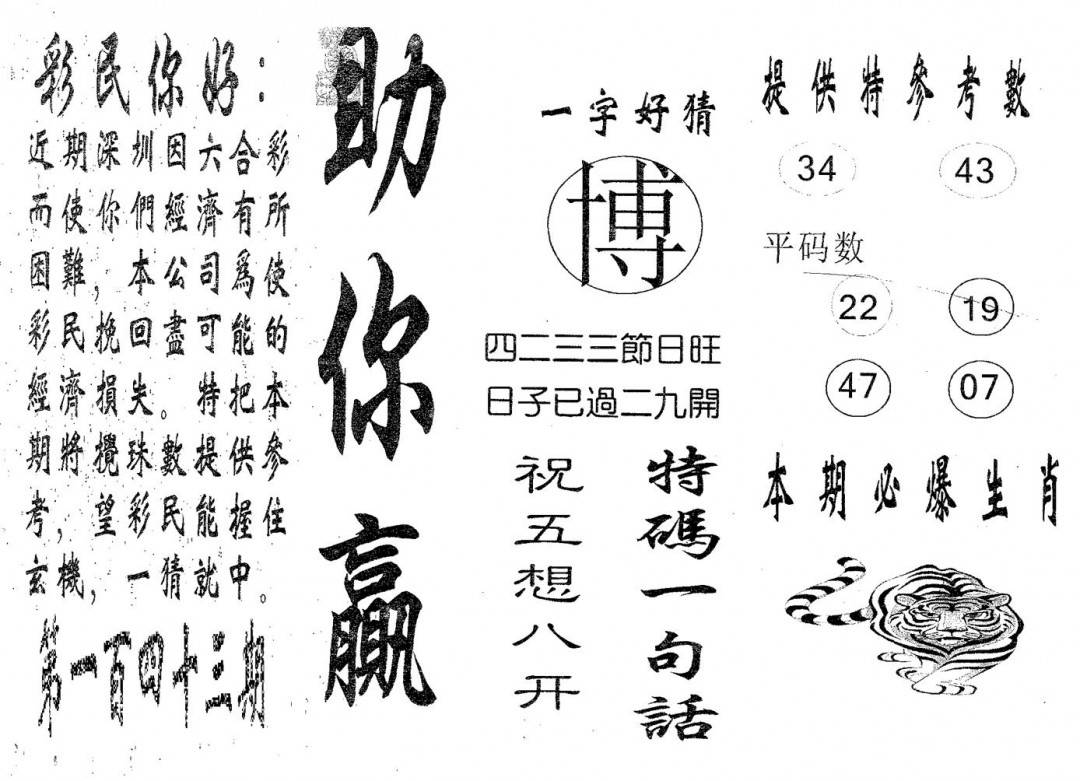 彩民你好：
近期深圳因六合彩
而使你們經濟有所
困難，本公司爲使
彩民挽回盡可能的
經濟損失。特把本
期將攪珠數提供參
考，望彩民能握住
玄機，一猜就中。
第一百四十三期
助你贏
一字好猜
博
四二三三節日旺
日子已過二九開
特碼一句話
祝五想八开
提供特參考數
34 43
平码数
22 19
47 07
本期必爆生肖